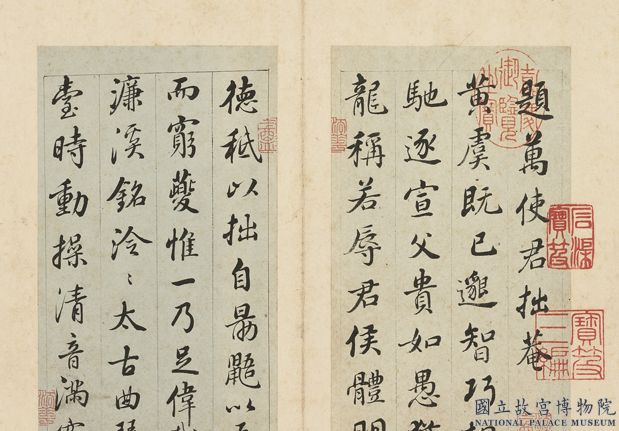 題萬使君拙菴
黃虞既已邈智巧
馳逐宣父貴如愚
龍稱若辱君侯體
德秪以拙自勗鼯以
而窮夔惟一乃足偉
濂溪銘泠〻太古曲
臺時動操清音滿
寶笈三編
國立故宮博物院
NATIONAL PALACE MUSEUM